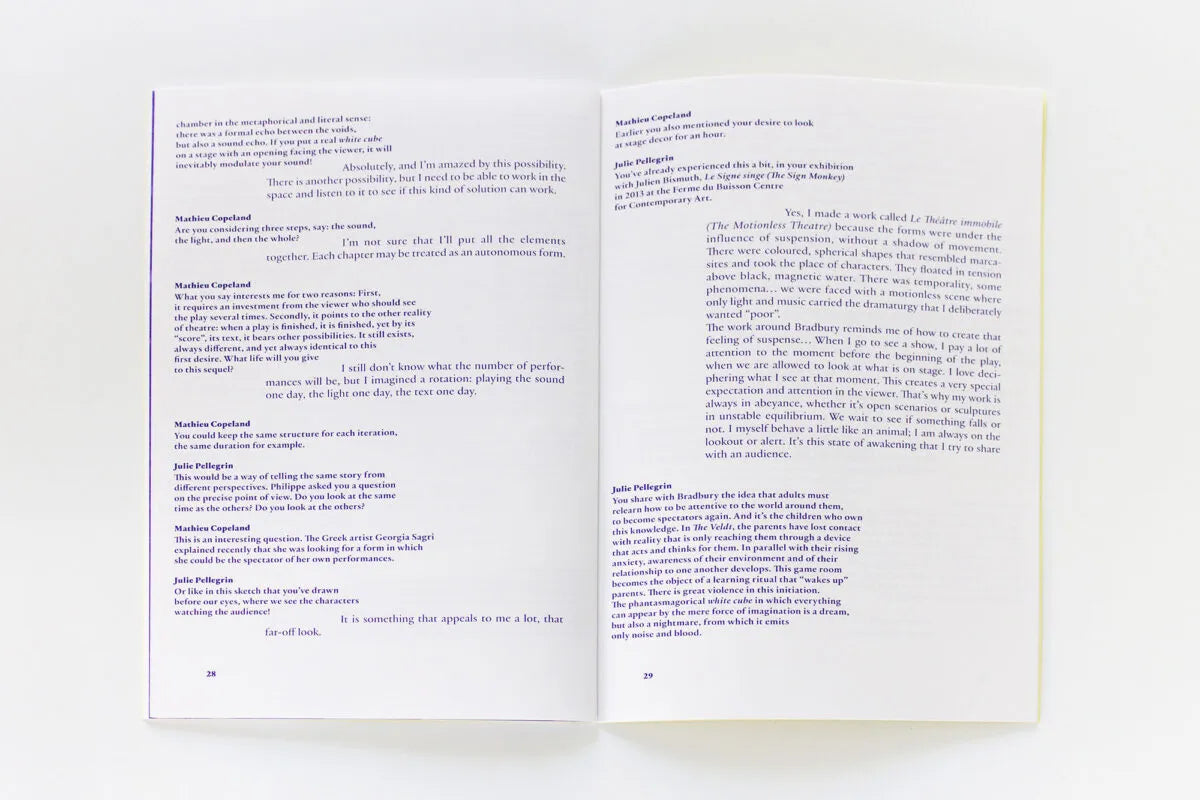 chamber in the metaphorical and literal sense:
there was a formal echo between the voids,
but also a sound echo. If you put a real white cube
on a stage with an opening facing the viewer, it will
inevitably modulate your sound!
Absolutely, and I'm amazed by this possibility.
There is another possibility, but I need to be able to work in the
space and listen to it to see if this kind of solution can work.
Mathieu Copeland
Are you considering three steps, say: the sound,
the light, and then the whole?
I'm not sure that I'll put all the elements
together. Each chapter may be treated as an autonomous form.
Mathieu Copeland
What you say interests me for two reasons: First,
it requires an investment from the viewer who should see
the play several times. Secondly, it points to the other reality
of theatre: when a play is finished, it is finished, yet by its
“score”, its text, it bears other possibilities. It still exists,
always different, and yet always identical to this
first desire. What life will you give
to this sequel?
I still don't know what the number of perfor-
mances will be, but I imagined a rotation: playing the sound
one day, the light one day, the text one day.
Mathieu Copeland
You could keep the same structure for each iteration,
the same duration for example.
Julie Pellegrin
This would be a way of telling the same story from
different perspectives. Philippe asked you a question
on the precise point of view. Do you look at the same
time as the others? Do you look at the others?
Mathieu Copeland
This is an interesting question. The Greek artist Georgia Sagri
explained recently that she was looking for a form in which
she could be the spectator of her own performances.
Julie Pellegrin
Or like in this sketch that you've drawn
before our eyes, where we see the characters
watching the audience!
It is something that appeals to me a lot, that
far-off look.
28
Mathieu Copeland
Earlier you also mentioned your desire to look
at stage decor for an hour.
Julie Pellegrin
You've already experienced this a bit, in your exhibition
with Julien Bismuth, Le Signe singe (The Sign Monkey)
in 2013 at the Ferme du Buisson Centre
for Contemporary Art.
Yes, I made a work called Le Théâtre immobile
(The Motionless Theatre) because the forms were under the
influence of suspension, without a shadow of movement.
There were coloured, spherical shapes that resembled marca-
sites and took the place of characters. They floated in tension
above black, magnetic water. There was temporality, some
phenomena… we were faced with a motionless scene where
only light and music carried the dramaturgy that I deliberately
wanted “poor”.
The work around Bradbury reminds me of how to create that
feeling of suspense… When I go to see a show, I pay a lot of
attention to the moment before the beginning of the play,
when we are allowed to look at what is on stage. I love deci-
phering what I see at that moment. This creates a very special
expectation and attention in the viewer. That's why my work is
always in abeyance, whether it's open scenarios or sculptures
in unstable equilibrium. We wait to see if something falls or
not. I myself behave a little like an animal; I am always on the
lookout or alert. It's this state of awakening that I try to share
with an audience.
Julie Pellegrin
You share with Bradbury the idea that adults must
relearn how to be attentive to the world around them,
to become spectators again. And it's the children who own
this knowledge. In The Veldt, the parents have lost contact
with reality that is only reaching them through a device
that acts and thinks for them. In parallel with their rising
anxiety, awareness of their environment and of their
relationship to one another develops. This game room
becomes the object of a learning ritual that “wakes up”
parents. There is great violence in this initiation.
The phantasmagorical white cube in which everything
can appear by the mere force of imagination is a dream,
but also a nightmare, from which it emits
only noise and blood.
29